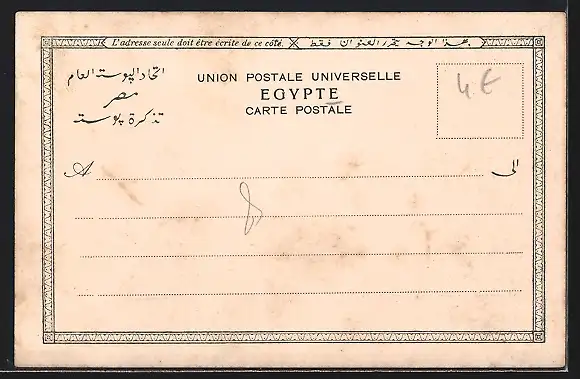 L'adresse seule doit être écrite de ce côté. هذا الوجه يحرر العنوان فقط
اتحاد البوسته العام
مصر
تذكرة بوسته
UNION POSTALE UNIVERSELLE
EGYPTE
CARTE POSTALE
4 €
A
الى
8